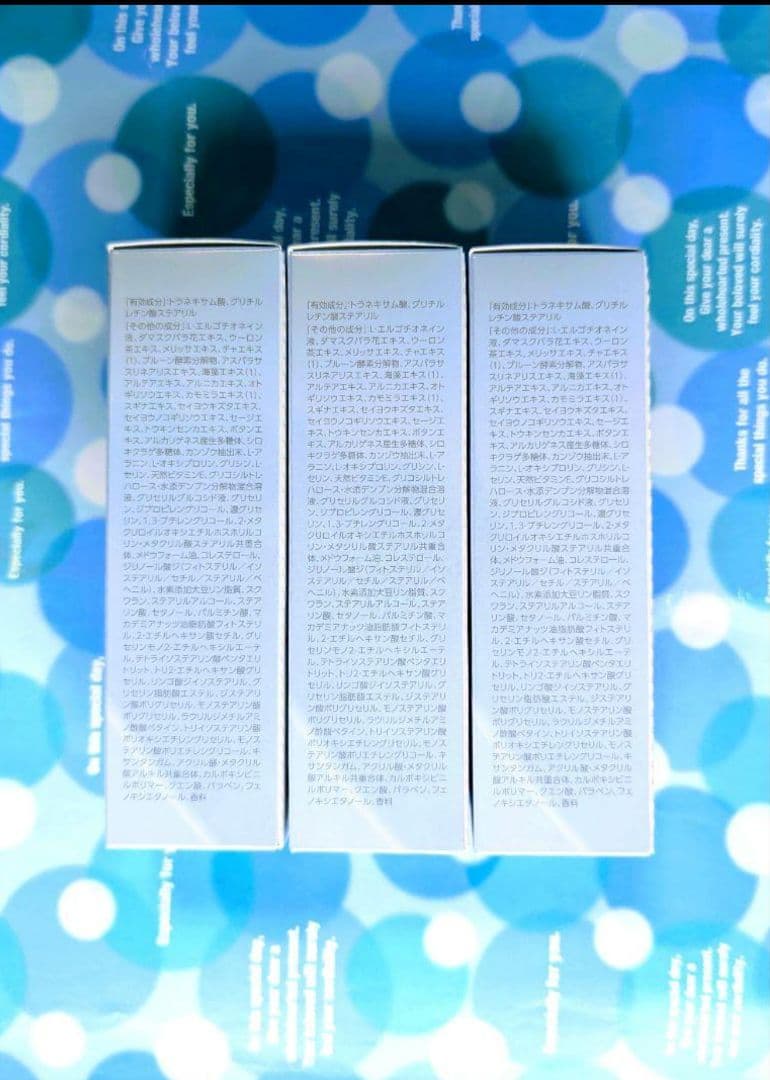 On this s
Give yo
wholehe
Your belove
feel your
Thank
special
Especially for you.
day,
ar a
present.
surely
iality.
you.
feel your cordiality.
On this special day,
Give your dear a
wholehearted present.
Your beloved will surely
feel your cordiality.
special things you do.
Thanks for all the
special things you do.
Especially for you.
[有効成分]:トラネキサム酸、グリチル
レチン酸ステアリル
[その他の成分]:L-エルゴチオネイン
液、ダマスクバラ花エキス、ウーロン
茶エキス、メリッサエキス、チャエキス
(1)、プルーン酵素分解物、アスパラサ
スリネアリスエキス、海藻エキス(1)、
アルテアエキス、アルニカエキス、オト
ギリソウエキス、カモミラエキス(1)、
スギナエキス、セイヨウキズタエキス、
セイヨウノコギリソウエキス、セージエ
キス、トウキンセンカエキス、ボタンエ
キス、アルカリゲネス産生多糖体、シロ
キクラゲ多糖体、カンゾウ抽出末、L-ア
ラニン、L-オキシプロリン、グリシン、L-
セリン、天然ビタミンE、グリコシルトレ
ハロース・水添デンプン分解物混合溶
液、グリセリルグルコシド液、グリセリ
ン、ジプロピレングリコール、濃グリセ
リン、1,3-ブチレングリコール、2-メタ
クリロイルオキシエチルホスホリルコ
リン・メタクリル酸ステアリル共重合
体、メドウフォーム油、コレステロール、
ジリノール酸ジ(フィトステリル/イソ
ステアリル/セチル/ステアリル/ベ
ヘニル)、水素添加大豆リン脂質、スク
ワラン、ステアリルアルコール、ステア
リン酸、セタノール、パルミチン酸、マ
カデミアナッツ油脂肪酸フィトステリ
ル、2-エチルヘキサン酸セチル、グリ
セリンモノ2-エチルヘキシルエーテ
ル、テトライソステアリン酸ペンタエリ
トリット、トリ2-エチルヘキサン酸グリ
セリル、リンゴ酸ジイソステアリル、グ
リセリン脂肪酸エステル、ジステアリ
ン酸ポリグリセリル、モノステアリン酸
ポリグリセリル、ラウリルジメチルアミ
ノ酢酸ベタイン、トリイソステアリン酸
ポリオキシエチレングリセリル、モノス
テアリン酸ポリエチレングリコール、キ
サンタンガム、アクリル酸・メタクリル
酸アルキル共重合体、カルボキシビニ
ルポリマー、クエン酸、パラベン、フェ
ノキシエタノール、香料
[有効成分]:トラネキサム酸、グリチル
レチン酸ステアリル
[その他の成分]:L-エルゴチオネイン
液、ダマスクバラ花エキス、ウーロン
茶エキス、メリッサエキス、チャエキス
(1)、プルーン酵素分解物、アスパラサ
スリネアリスエキス、海藻エキス(1)、
アルテアエキス、アルニカエキス、オト
ギリソウエキス、カモミラエキス(1)、
スギナエキス、セイヨウキズタエキス、
セイヨウノコギリソウエキス、セージエ
キス、トウキンセンカエキス、ボタンエ
キス、アルカリゲネス産生多糖体、シロ
キクラゲ多糖体、カンゾウ抽出末、L-ア
ラニン、L-オキシプロリン、グリシン、L-
セリン、天然ビタミンE、グリコシルトレ
ハロース・水添デンプン分解物混合溶
液、グリセリルグルコシド液、グリセリ
ン、ジプロピレングリコール、濃グリセ
リン、1,3-ブチレングリコール、2-メタ
クリロイルオキシエチルホスホリルコ
リン・メタクリル酸ステアリル共重合
体、メドウフォーム油、コレステロール、
ジリノール酸ジ(フィトステリル/イソ
ステアリル/セチル/ステアリル/ベ
ヘニル)、水素添加大豆リン脂質、スク
ワラン、ステアリルアルコール、ステア
リン酸、セタノール、パルミチン酸、マ
カデミアナッツ油脂肪酸フィトステリ
ル、2-エチルヘキサン酸セチル、グリ
セリンモノ2-エチルヘキシルエーテ
ル、テトライソステアリン酸ペンタエリ
トリット、トリ2-エチルヘキサン酸グリ
セリル、リンゴ酸ジイソステアリル、グ
リセリン脂肪酸エステル、ジステアリ
ン酸ポリグリセリル、モノステアリン酸
ポリグリセリル、ラウリルジメチルアミ
ノ酢酸ベタイン、トリイソステアリン酸
ポリオキシエチレングリセリル、モノス
テアリン酸ポリエチレングリコール、キ
サンタンガム、アクリル酸・メタクリル
酸アルキル共重合体、カルボキシビニ
ルポリマー、クエン酸、パラベン、フェ
ノキシエタノール、香料
[有効成分]:トラネキサム酸、グリチル
レチン酸ステアリル
[その他の成分]:L-エルゴチオネイン
液、ダマスクバラ花エキス、ウーロン
茶エキス、メリッサエキス、チャエキス
(1)、プルーン酵素分解物、アスパラサ
スリネアリスエキス、海藻エキス(1)、
アルテアエキス、アルニカエキス、オト
ギリソウエキス、カモミラエキス(1)、
スギナエキス、セイヨウキズタエキス、
セイヨウノコギリソウエキス、セージエ
キス、トウキンセンカエキス、ボタンエ
キス、アルカリゲネス産生多糖体、シロ
キクラゲ多糖体、カンゾウ抽出末、L-ア
ラニン、L-オキシプロリン、グリシン、L-
セリン、天然ビタミンE、グリコシルトレ
ハロース・水添デンプン分解物混合溶
液、グリセリルグルコシド液、グリセリ
ン、ジプロピレングリコール、濃グリセ
リン、1,3-ブチレングリコール、2-メタ
クリロイルオキシエチルホスホリルコ
リン・メタクリル酸ステアリル共重合
体、メドウフォーム油、コレステロール、
ジリノール酸ジ(フィトステリル/イソ
ステアリル/セチル/ステアリル/ベ
ヘニル)、水素添加大豆リン脂質、スク
ワラン、ステアリルアルコール、ステア
リン酸、セタノール、パルミチン酸、マ
カデミアナッツ油脂肪酸フィトステリ
ル、2-エチルヘキサン酸セチル、グリ
セリンモノ2-エチルヘキシルエーテ
ル、テトライソステアリン酸ペンタエリ
トリット、トリ2-エチルヘキサン酸グリ
セリル、リンゴ酸ジイソステアリル、グ
リセリン脂肪酸エステル、ジステアリ
ン酸ポリグリセリル、モノステアリン酸
ポリグリセリル、ラウリルジメチルアミ
ノ酢酸ベタイン、トリイソステアリン酸
ポリオキシエチレングリセリル、モノス
テアリン酸ポリエチレングリコール、キ
サンタンガム、アクリル酸・メタクリル
酸アルキル共重合体、カルボキシビニ
ルポリマー、クエン酸、パラベン、フェ
ノキシエタノール、香料
On this special day,
Especially for
On this special day,
Give your dear a
wholehearted present.
Your beloved will surely
feel your cordiality.
Especially for you.
On this special day,
Give your dear a
wholehearted present.
Your beloved will surely
feel your cordiality.